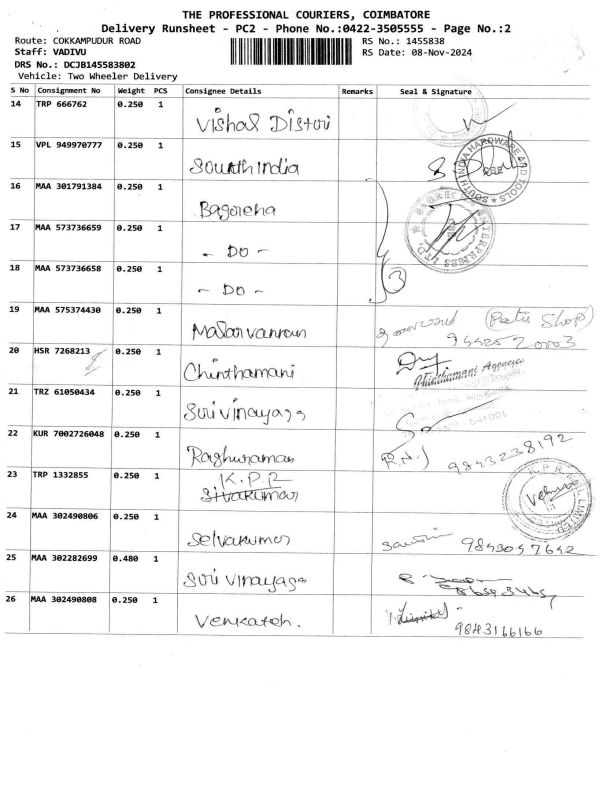 THE PROFESSIONAL COURIERS, COIMBATORE
Delivery Runsheet - PC2 - Phone No.:0422-3505555 - Page No.:2
Route: COKKAMPUDUR ROAD
RS No.: 1455838
Staff: VADIVU
RS Date: 08-Nov-2024
DRS No.: DCJB145583802
Vehicle: Two Wheeler Delivery
S No Consignment No Weight PCS Consignee Details Remarks Seal & Signature
14 TRP 666762 0.250 1
Vishal Distori
15 VPL 949970777 0.250 1
South India
SOUTH INDIA HARDWARE AND TOOLS
16 MAA 301791384 0.250 1
Bagorcha
17 MAA 573736659 0.250 1
- DO -
18 MAA 573736658 0.250 1
- DO -
3
19 MAA 575374430 0.250 1
Malarvannan
(Petis Shop)
20 HSR 7268213 0.250 1
Chinthamani
Chinthamani Agencies
21 TRZ 61050434 0.250 1
Sri vinayaga
22 KUR 7002726048 0.250 1
Raghuraman
R.N.S 9843238192
23 TRP 1332855 0.250 1
K.P.R
Sivakumar
24 MAA 302490806 0.250 1
Selvakumar
9843047642
25 MAA 302282699 0.480 1
Sri vinayaga
26 MAA 302490808 0.250 1
Venkatesh.
9843166166